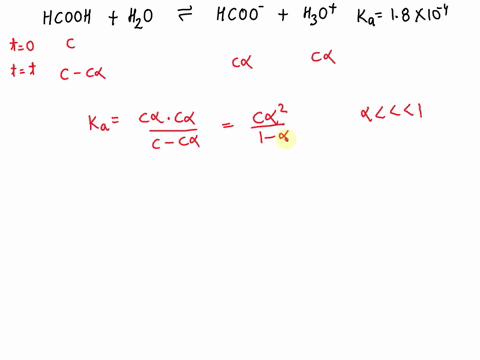 HCOOH + H₂O ⇌ HCOO⁻ + H₃O⁺ Ka = 1.8 × 10⁻⁴
t=0 C
t=t C − Cα Cα Cα
Ka = Cα · Cα / C − Cα = Cα² / 1 − α α <<< 1